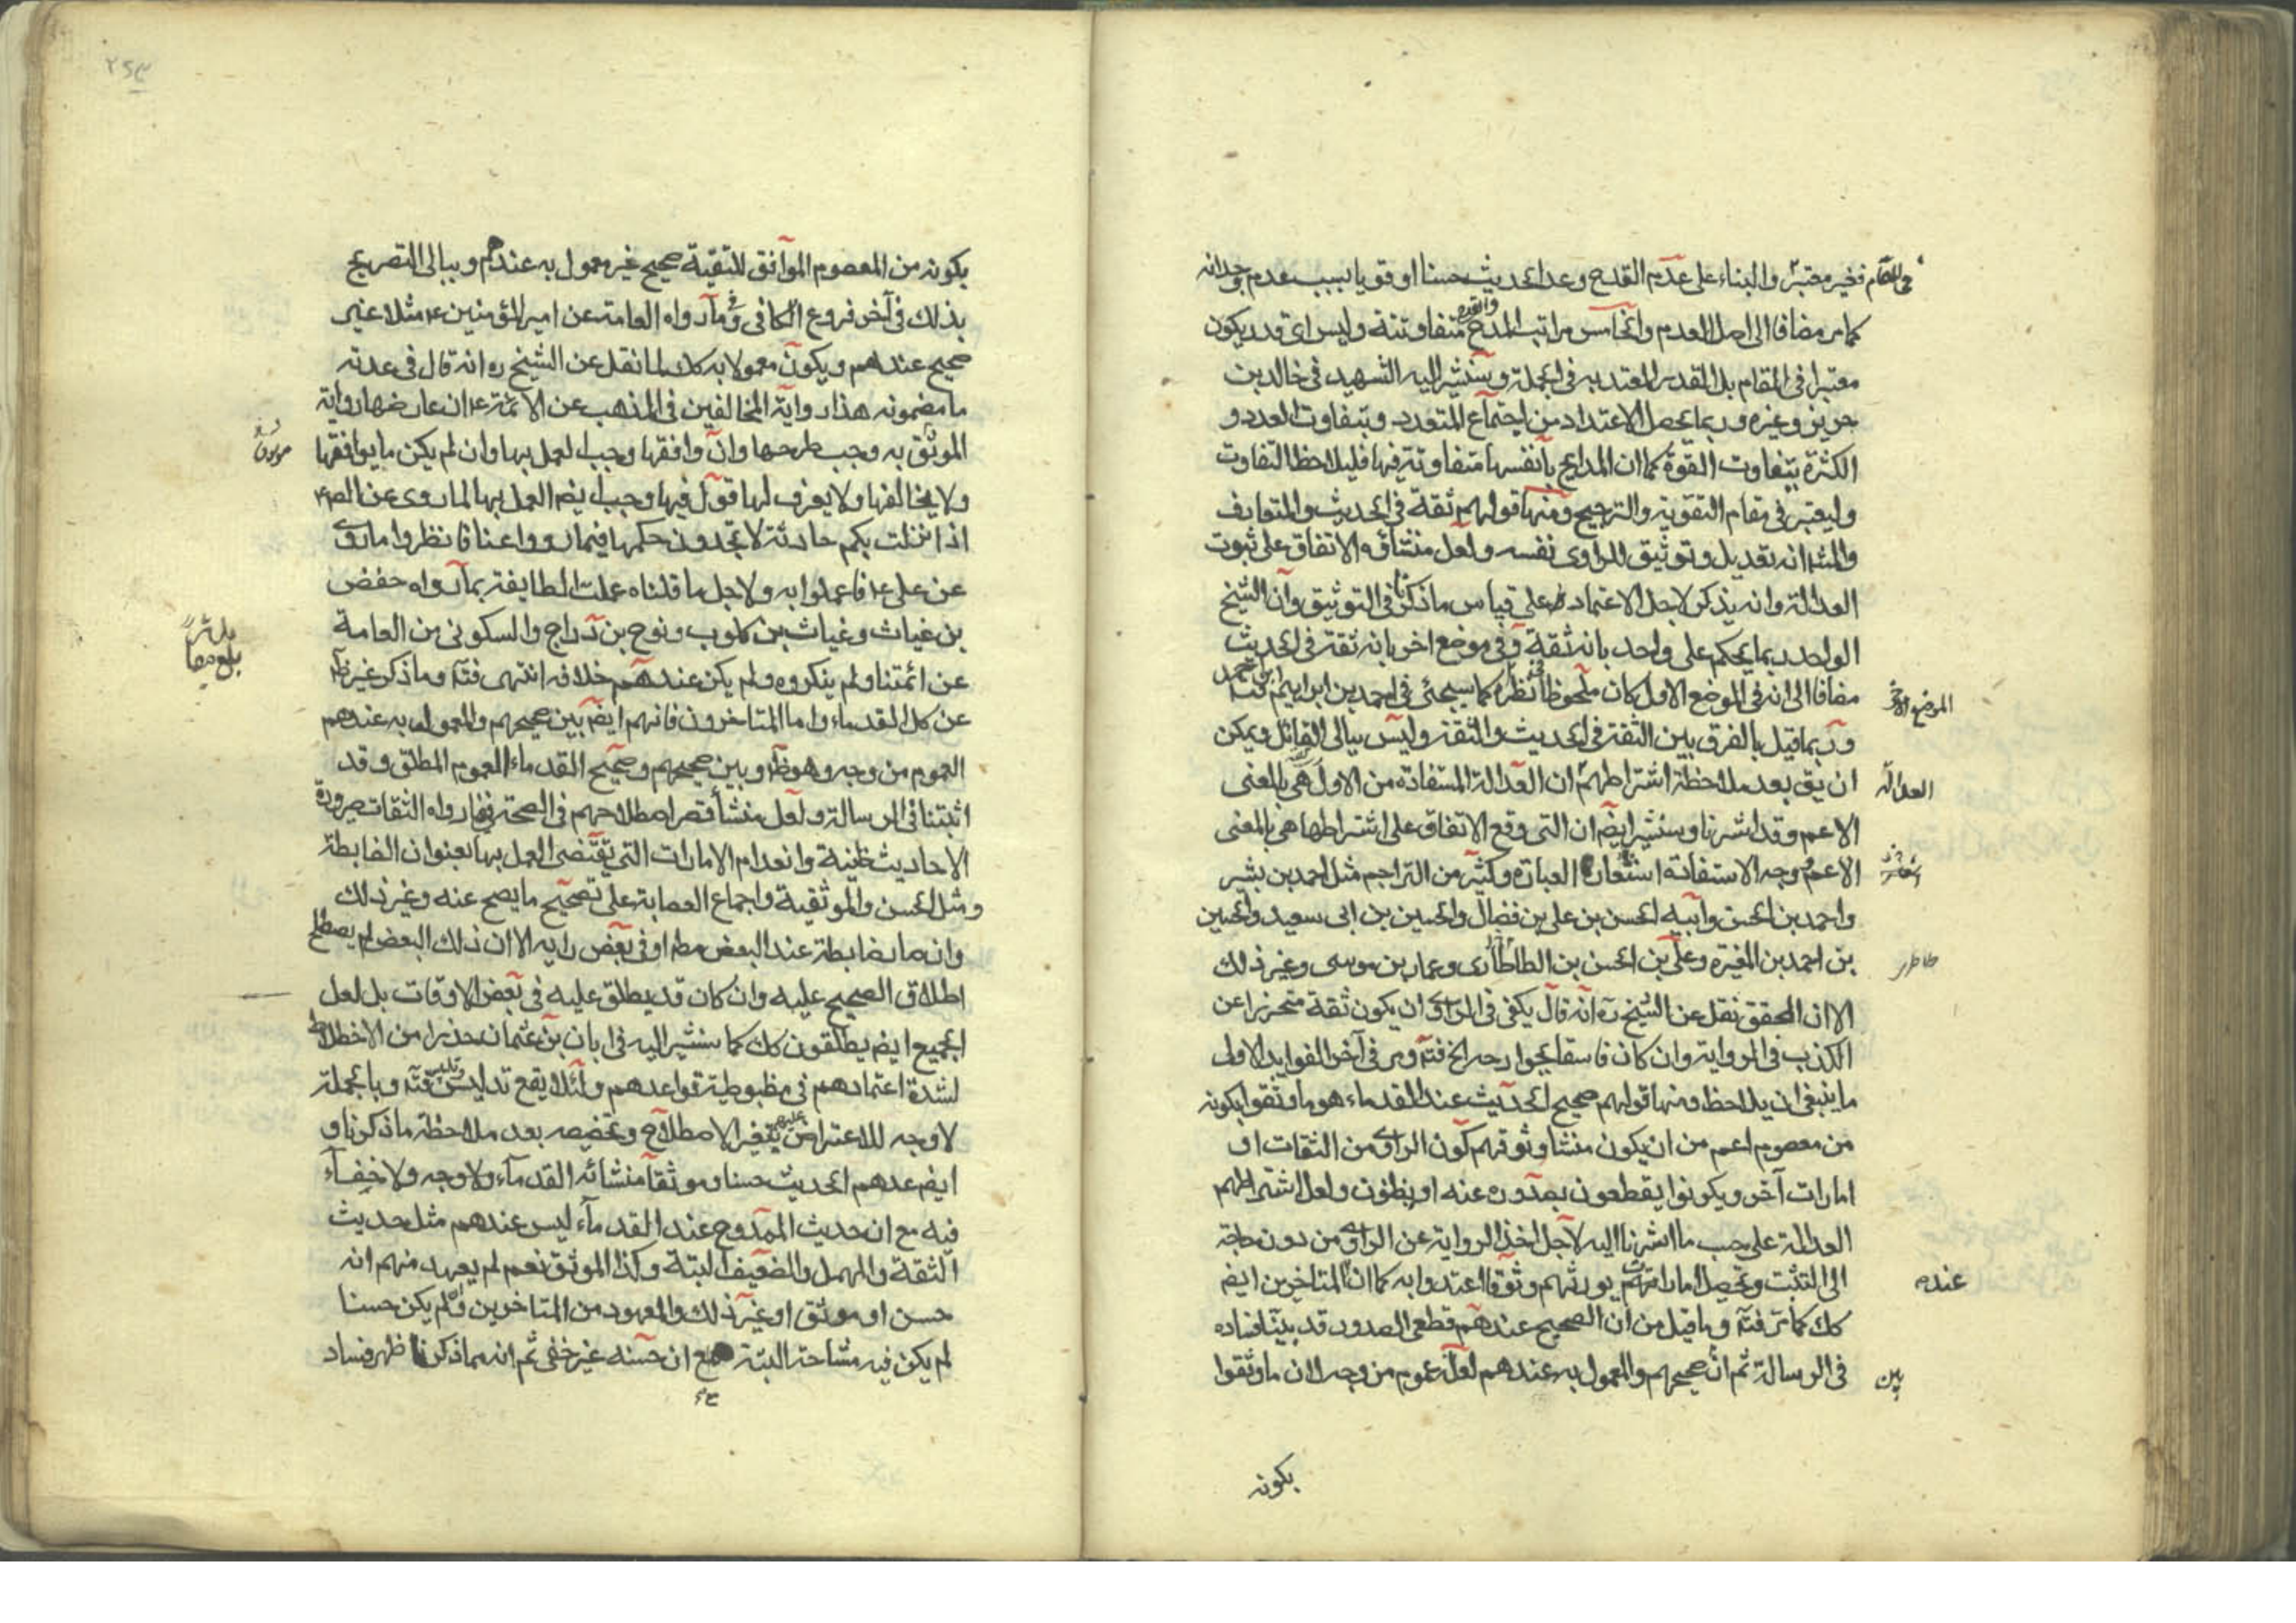 في المقام فغير معتبر والبناء على عدم القدح وعد الحديث حسنا او قويا بسبب عدم وجدانه
كما مر مضافا الى اصل العدم والخامس مراتب المدح والقدح متفاوتة وليس اى قدر يكون
معتبرا فى المقام بل القدر المعتد به فى الجملة وسنشير اليه الشهيد فى خالد بن
جرير وغيره وربما يحصل الاعتداد من اجتماع المتعدد وبتفاوت العدد و
الكثرة يتفاوت القوة كما ان المدايح بانفسها متفاوتة فيها فليلاحظ التفاوت
وليعتبر فى مقام التقوية والترجيح ومنها قولهم ثقة فى الحديث والمتعارف
والمش انه تعديل وتوثيق للراوى نفسه ولعل منشاؤه الاتفاق على ثبوت
العدالة وانه يذكر لاجل الاعتماد على قياس ما ذكرنا فى التوثيق وان الشيخ
الواحد ربما يحكم على واحد بانه ثقة وفى موضع اخر بانه ثقة فى الحديث
مضافا الى انه فى الموضع الاول كان ملحوظا نظره كما سيجئ فى احمد بن ابراهيم بن محمد فت
الموضع الاخر
وربما قيل بالفرق بين الثقة فى الحديث والثقة وليس ببالى القائل ويمكن
ان يق بعد ملاحظة اشتراطهم ان العدالة المستفادة من الاول هى بالمعنى
العدالة
الاعم وقد اشرنا وسنشير ايضم ان التى وقع الاتفاق على اشتراطها هى بالمعنى
الاعم وجه الاستفادة اشعار العبارة وكثير من التراجم مثل احمد بن بشير
واحمد بن الحسن وابيه الحسن بن على بن فضال والحسين بن ابى سعيد والحسين
بن احمد بن المغيرة وعلى بن الحسن بن الطاطارى وعمار بن موسى وغير ذلك
طاطر
الا ان المحقق نقل عن الشيخ ره انه قال يكفى فى الراوى ان يكون ثقة متحرزا عن
الكذب فى الرواية وان كان فاسقا بجوارحه الخ فت ومر فى آخر الفوايد الاولى
ما ينبغى ان يلاحظ ومنها قولهم صحيح الحديث عند القدماء هو ما وثقوا بكونه
من معصوم اعم من ان يكون منشا وثوقهم كون الراوى من الثقات او
امارات آخر ويكونوا يقطعون بصدوره عنه او يظنون ولعل اشتراطهم
العدالة على حسب ما اشرنا اليه لاجل اخذ الرواية عن الراوى من دون حاجة
الى التثبت وتحصيل امارات تورثهم وثوقا اعتدوا به كما ان المتاخرين ايضم
عنده
كك كما مر فت وما قيل من ان الصحيح عندهم قطعى الصدور قد بينا فساده
فى الرسالة ثم ان صحيحهم والمعمول به عندهم لعله عموم من وجه لان ما وثقوا
بين
بكونه
بكونه من المعصوم الموافق للتقية صحيح غير معمول به عندهم وببالى التصريح
بذلك فى آخر فروع الكافى وما رواه العامة عن امير المؤمنين ع مثلا غير
صحيح عندهم ويكون معمولا به كك لما نقل عن الشيخ ره انه قال فى عدته
ما مضمونه هذا رواية المخالفين فى المذهب عن الائمة ع ان عارضها رواية
الموثق به وجب طرحها وان وافقها وجب العمل بها وان لم يكن ما يوافقها
ولا يخالفها ولا يعرف لها قول فيها وجب ايضم العمل بها لما روى عن الص ع
اذا نزلت بكم حادثة لا تجدون حكمها فيما رووا عنا فانظروا ما روى
عن على ع فاعملوا به ولاجل ما قلناه عملت الطايفة بما رواه حفص
بن غياث وغياث بن كلوب ونوح بن دراج والسكونى من العامة
عن ائمتنا ولم ينكروه ولم يكن عندهم خلافه انتهى فت وما ذكر غير ظ
عن كل القدماء واما المتاخرون فانهم ايضم بين صحيحهم والمعمول به عندهم
العموم من وجه وهو ظ وبين صحيحهم وصحيح القدماء العموم المطلق وقد
اثبتنا فى الرسالة ولعل منشأ قصر اصطلاحهم فى الصحة فيما رواه الثقات صيرورة
الاحاديث ظنية وانعدام الامارات التى تقتضى العمل بها بعنوان الضابطة
ومثل الحسن والموثقية واجماع العصابة على تصحيح ما يصح عنه وغير ذلك
وان صار ضابطة عند البعض مطم او فى بعض رايه الا ان ذلك البعض لم يصطلح
اطلاق الصحيح عليه وان كان قد يطلق عليه فى بعض الاوقات بل لعل
الجميع ايضم يطلقون كك كما سنشير اليه فى ابان بن عثمان حذرا من الاختلاط
لشدة اعتمادهم فى مظبوطية قواعدهم ولئلا يقع تدليس وتلبيس فت وبالجملة
لا وجه للاعتراض عليهم بتغير الاصطلاح وتخصيصه بعد ملاحظة ما ذكرنا و
ايضم عدهم الحديث حسنا وموثقا منشائه القدماء ولا وجه ولا خفاء
فيه مع ان حديث الممدوح عند القدماء ليس عندهم مثل حديث
الثقة والمهمل والضعيف البتة وكذا الموثق نعم لم يعهد منهم انه
حسن او موثق او غير ذلك والمعهود من المتاخرين ولم يكن حسنا
لم يكن فيه مشاحة البتة مع ان حسنه غير خفى ثم انه مما ذكرنا ظهر فساد